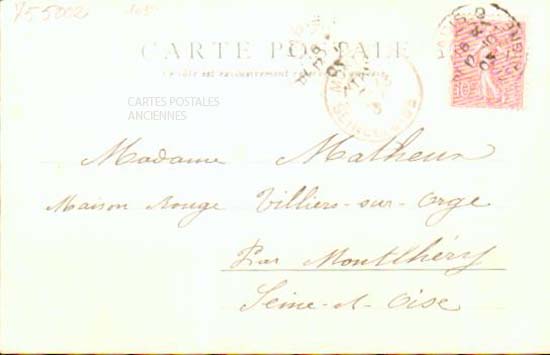 755002 105
CARTE POSTALE
Ce côté est exclusivement
CARTES POSTALES
ANCIENNES
10
Madame Matheux
Maison Rouge Villiers-sur-Orge
Par Montlhéry
Seine-et-Oise